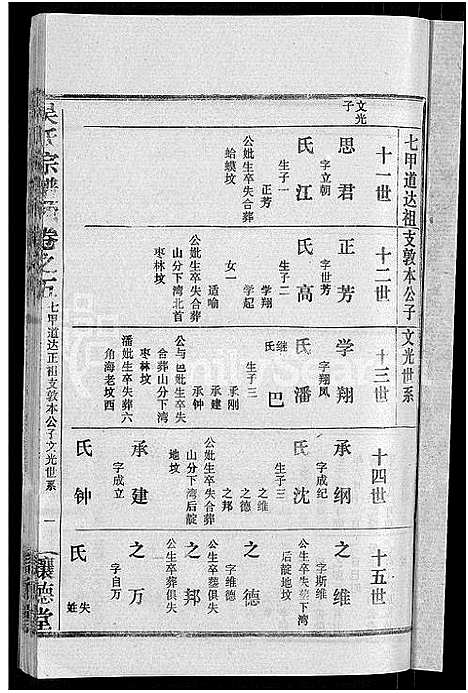 七甲道达祖支敦本公子文光世系
十一世
文光子
思君
字立朝
氏江
生子一
正芳
公妣生卒失合葬
蛤蟆坟
十二世
正芳
字世芳
氏高
生子二
学翔
学起
女一
适喻
公妣生卒失合葬
山分下湾北首
枣林坟
十三世
学翔
字翔凤
氏潘
继氏巴
生子三
承刚
承建
承钟
公与巴妣生卒失
合葬山分下湾
枣林坟
潘妣生卒失葬六
角海老坟西
十四世
承纲
字成纪
氏沈
生子三
之维
之德
之邦
公妣生卒失合葬
山分下湾后靛
地坟
承建
字成立
氏钟
十五世
之维
字斯维
公生卒失葬下湾
后靛地坟
之德
字维德
公生卒葬俱失
之邦
公生卒葬俱失
之万
字自万
氏失姓
吴氏宗谱
卷之五
七甲道达正祖支敦本公子文光世系
一
让德堂